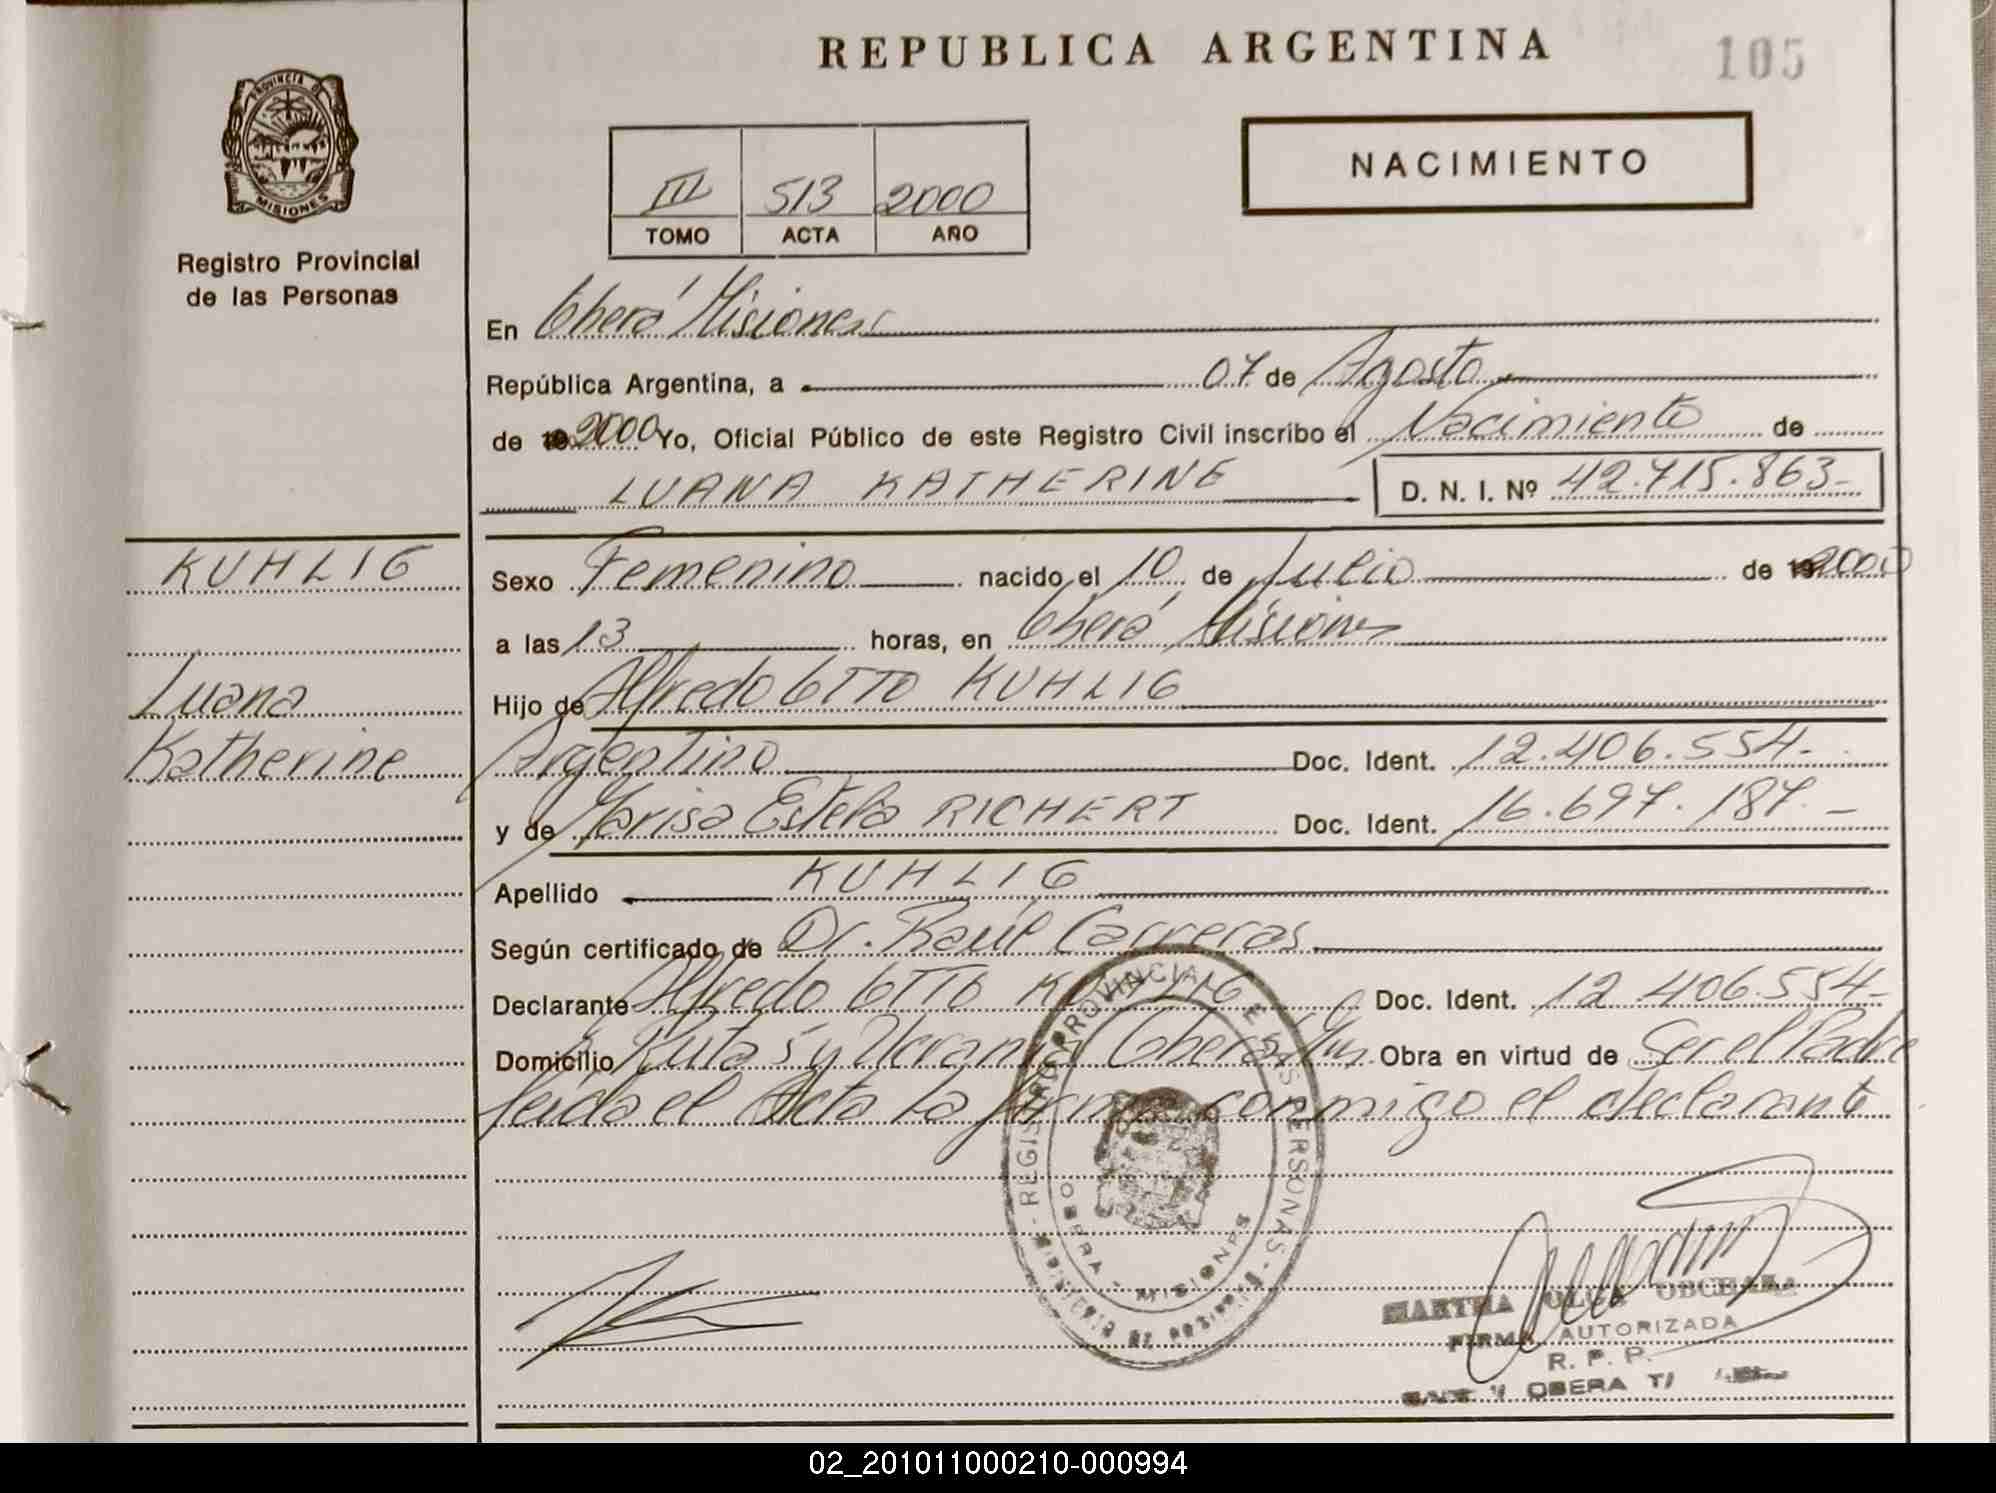 REPUBLICA ARGENTINA
105
PROVINCIA DE
MISIONES
Registro Provincial
de las Personas
III 513 2000
TOMO ACTA AÑO
NACIMIENTO
En Oberá Misiones
República Argentina, a 07 de Agosto
de 19 2000 Yo, Oficial Público de este Registro Civil inscribo el Nacimiento de
LUANA KATHERINE D. N. I. Nº 42.715.863-
KUHLIG
Luana
Katherine
Sexo Femenino nacido el 10 de Julio de 19 2000
a las 13 horas, en Oberá Misiones
Hijo de Alfredo OTTO KUHLIG
Argentino Doc. Ident. 12.406.554-
y de Marisa Estela RICHERT Doc. Ident. 16.697.187.-
Apellido KUHLIG
Según certificado de Dr. Raúl Carreras
Declarante Alfredo OTTO KUHLIG Doc. Ident. 12.406.554-
Domicilio Ruta 5 y Ucrania Oberá Mnes Obra en virtud de Ser el Padre
leída el Acta la firma conmigo el declarante
REGISTRO PROVINCIAL DE LAS PERSONAS
OBERA - MISIONES
MINISTERIO DE GOBIERNO
MARTHA OLGA
FIRMA AUTORIZADA
R. P. P.
OBERA
02_201011000210-000994